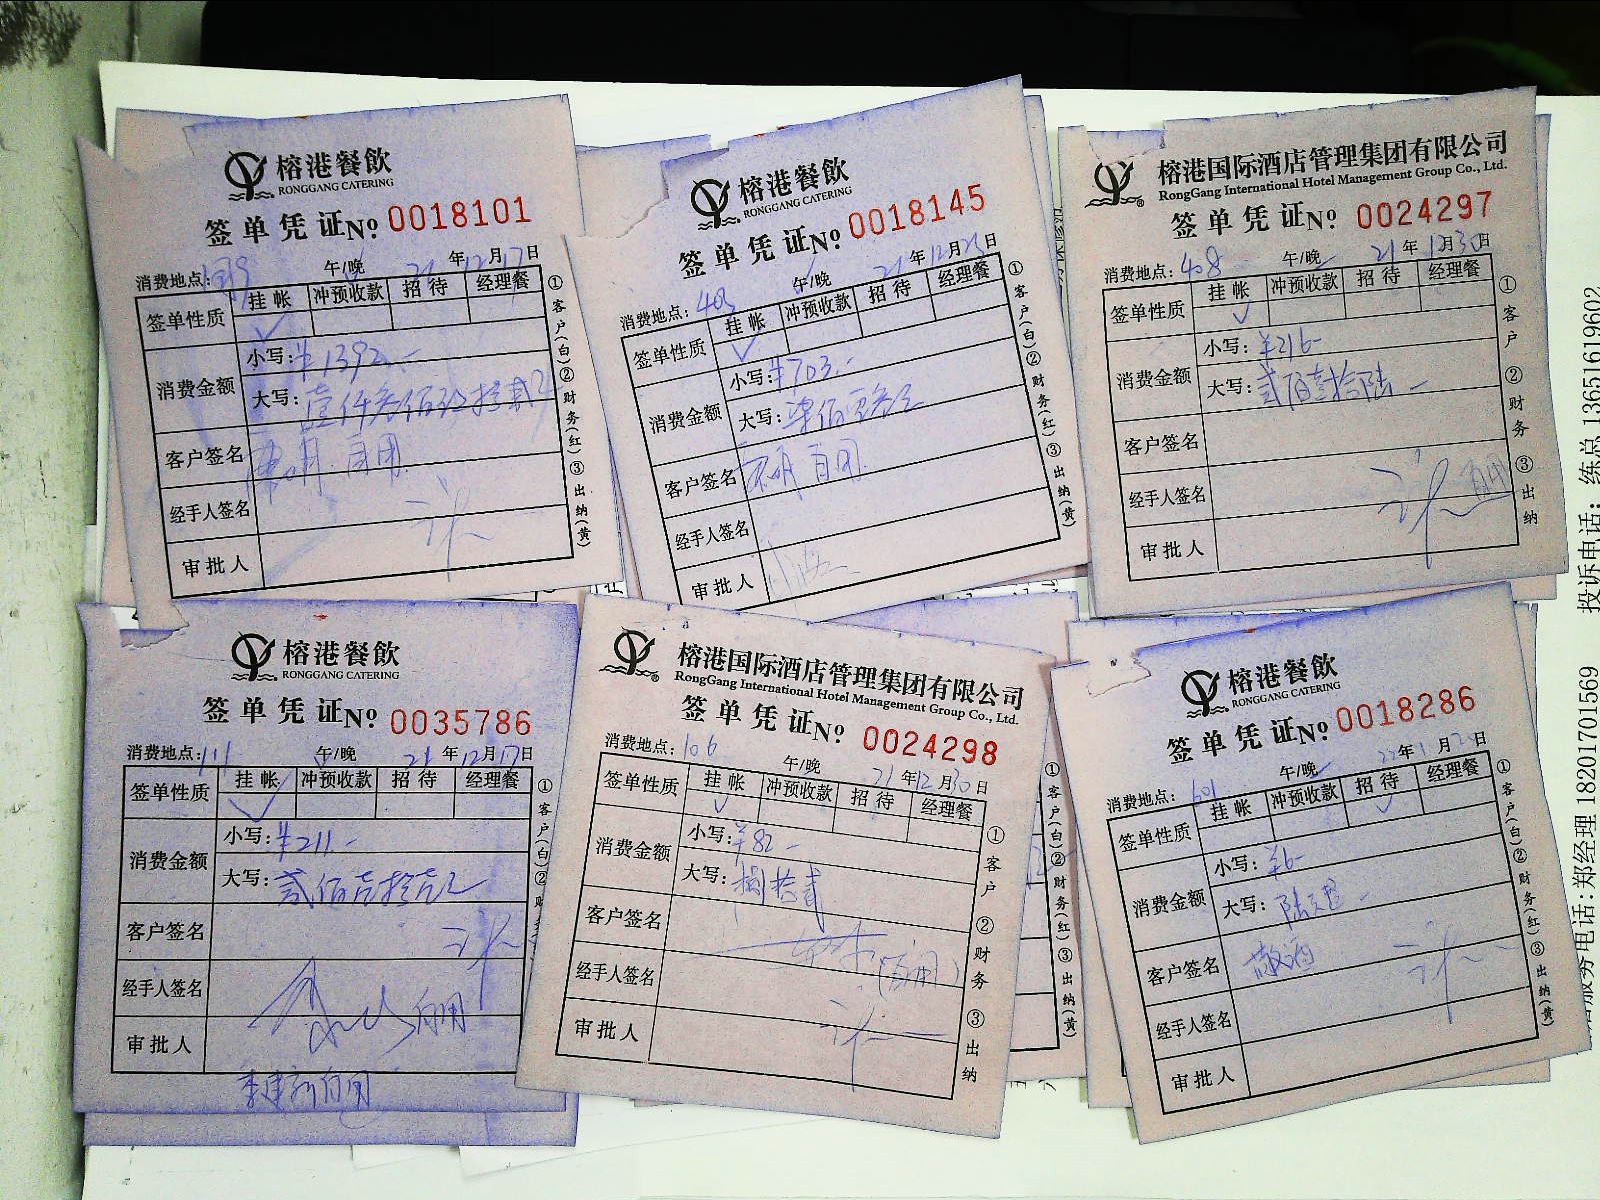 榕港餐飲
RONGGANG CATERING
签单凭证No 0018101
消费地点: 午/晚 21年12月17日
签单性质 挂帐 冲预收款 招待 经理餐
消费金额 小写: ¥1392.-
大写: 壹仟叁佰玖拾贰
客户签名
经手人签名
审批人
①客户(白)②财务(红)③出纳(黄)
榕港餐飲
RONGGANG CATERING
签单凭证No 0018145
消费地点: 午/晚 21年12月 日
签单性质 挂帐 冲预收款 招待 经理餐
消费金额 小写: ¥703.-
大写: 柒佰零叁元
客户签名
经手人签名
审批人
①客户(白)②财务(红)③出纳(黄)
榕港国际酒店管理集团有限公司
RongGang International Hotel Management Group Co., Ltd.
签单凭证No 0024297
消费地点: 408 午/晚 21年12月30日
签单性质 挂帐 冲预收款 招待 经理餐
消费金额 小写: ¥216-
大写: 贰佰壹拾陆-
客户签名
经手人签名
审批人
①客户 ②财务 ③出纳
榕港餐飲
RONGGANG CATERING
签单凭证No 0035786
消费地点: 111 午/晚 21年12月17日
签单性质 挂帐 冲预收款 招待 经理餐
消费金额 小写: ¥211-
大写: 贰佰壹拾壹元
客户签名
经手人签名
审批人
①客户(白)②财
榕港国际酒店管理集团有限公司
RongGang International Hotel Management Group Co., Ltd.
签单凭证No 0024298
消费地点: 106 午/晚 21年12月30日
签单性质 挂帐 冲预收款 招待 经理餐
消费金额 小写: ¥82-
大写: 捌拾贰
客户签名
经手人签名
审批人
①客户 ②财务 ③出纳
①客户(白)②财务(红)③出纳(黄)
榕港餐飲
RONGGANG CATERING
签单凭证No 0018286
消费地点: 601 午/晚 22年1月 日
签单性质 挂帐 冲预收款 招待 经理餐
消费金额 小写: ¥6-
大写: 陆元
客户签名 敬酒
经手人签名
审批人
①客户(白)②财务(红)③出纳(黄)
服务电话: 郑经理 18201701569 投诉电话: 练总 13651619602